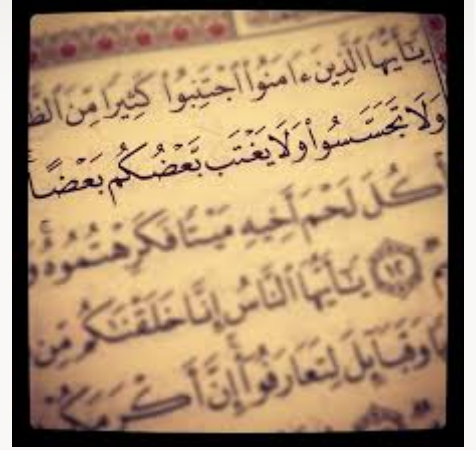 يَـٰٓأَيُّهَا ٱلَّذِينَ ءَامَنُوا۟ ٱجْتَنِبُوا۟ كَثِيرًا مِّنَ
وَلَا تَجَسَّسُوا۟ وَلَا يَغْتَب بَّعْضُكُم بَعْضًا
أْكُلَ لَحْمَ أَخِيهِ مَيْتًا فَكَرِهْتُمُوهُ
١٢ يَـٰٓأَيُّهَا ٱلنَّاسُ إِنَّا خَلَقْنَـٰكُم مِّن
وَقَبَآئِلَ لِتَعَارَفُوٓا۟ إِنَّ أَكْرَمَكُمْ